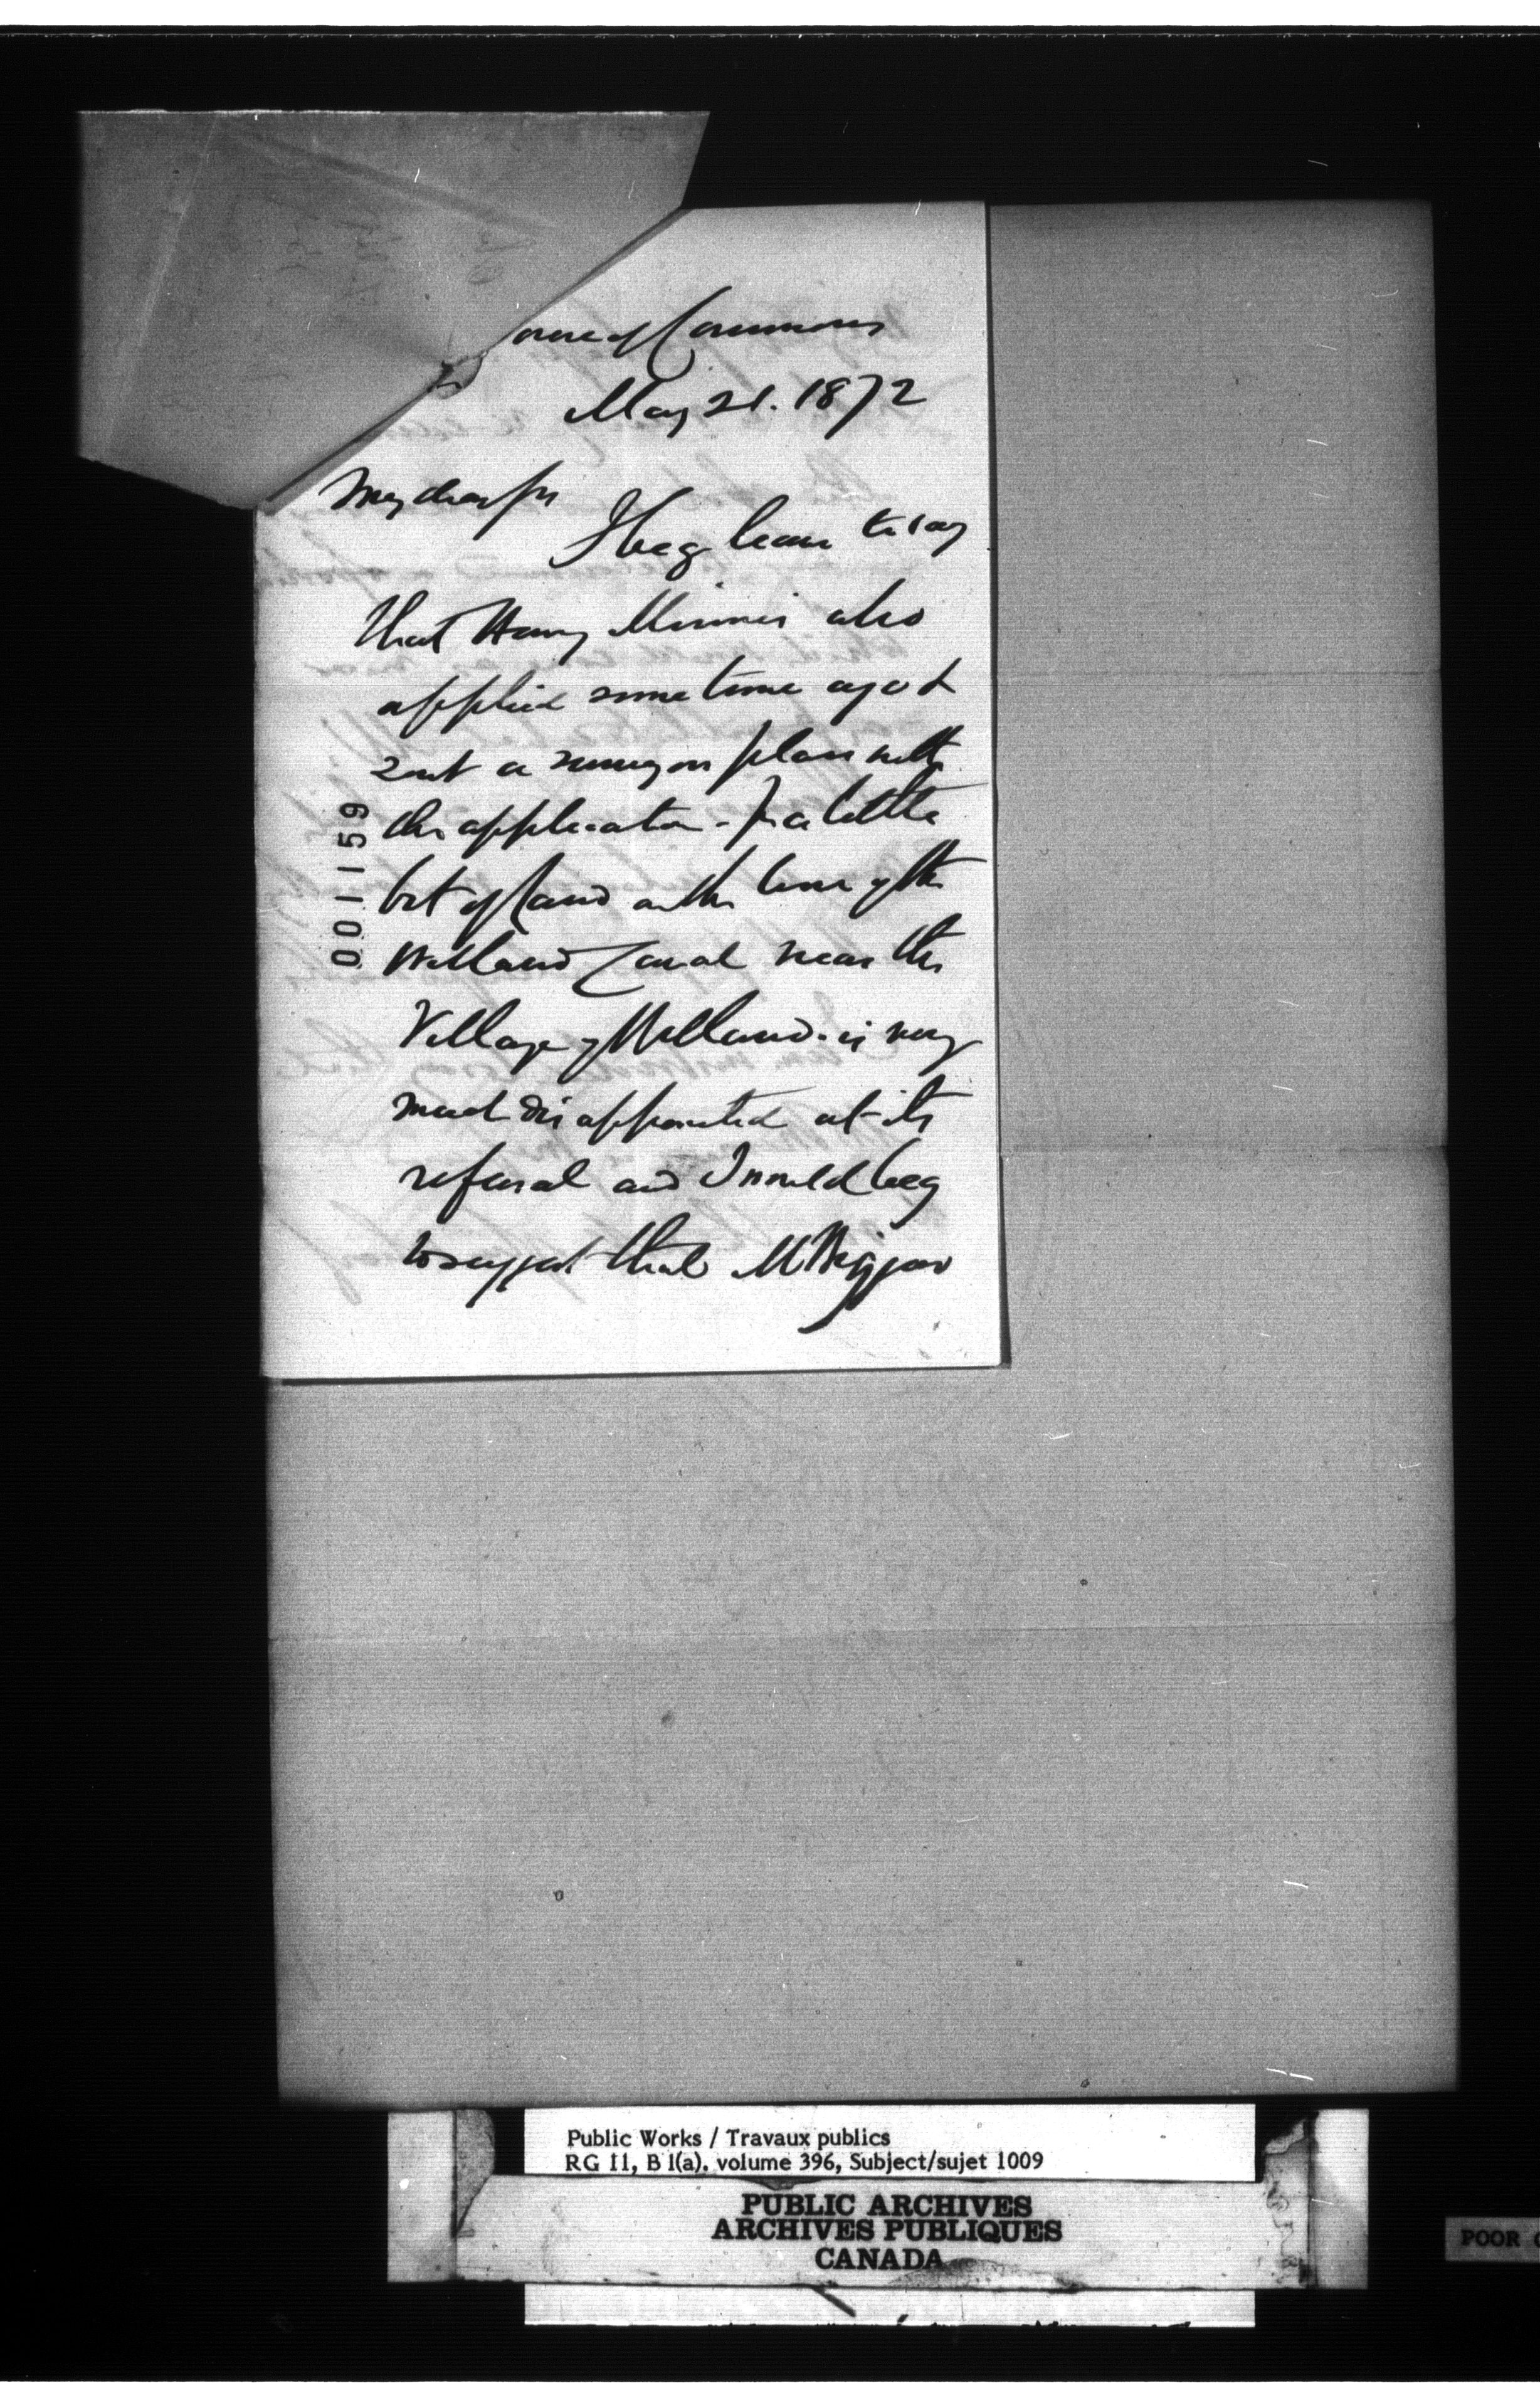 ouse of Commons
May 21. 1872
My dear Sir
I beg leave to say
that Henry Misener who
applied some time ago &
sent a surveyors plan with
the application - for a little
bit of land on the line of the
Welland Canal near the
Village of Welland. is very
much disappointed at its
refusal and I would beg
to suggest that Mr
001159
Public Works / Travaux publics
RG 11, B 1(a), volume 396, Subject/sujet 1009
PUBLIC ARCHIVES
ARCHIVES PUBLIQUES
CANADA
POOR